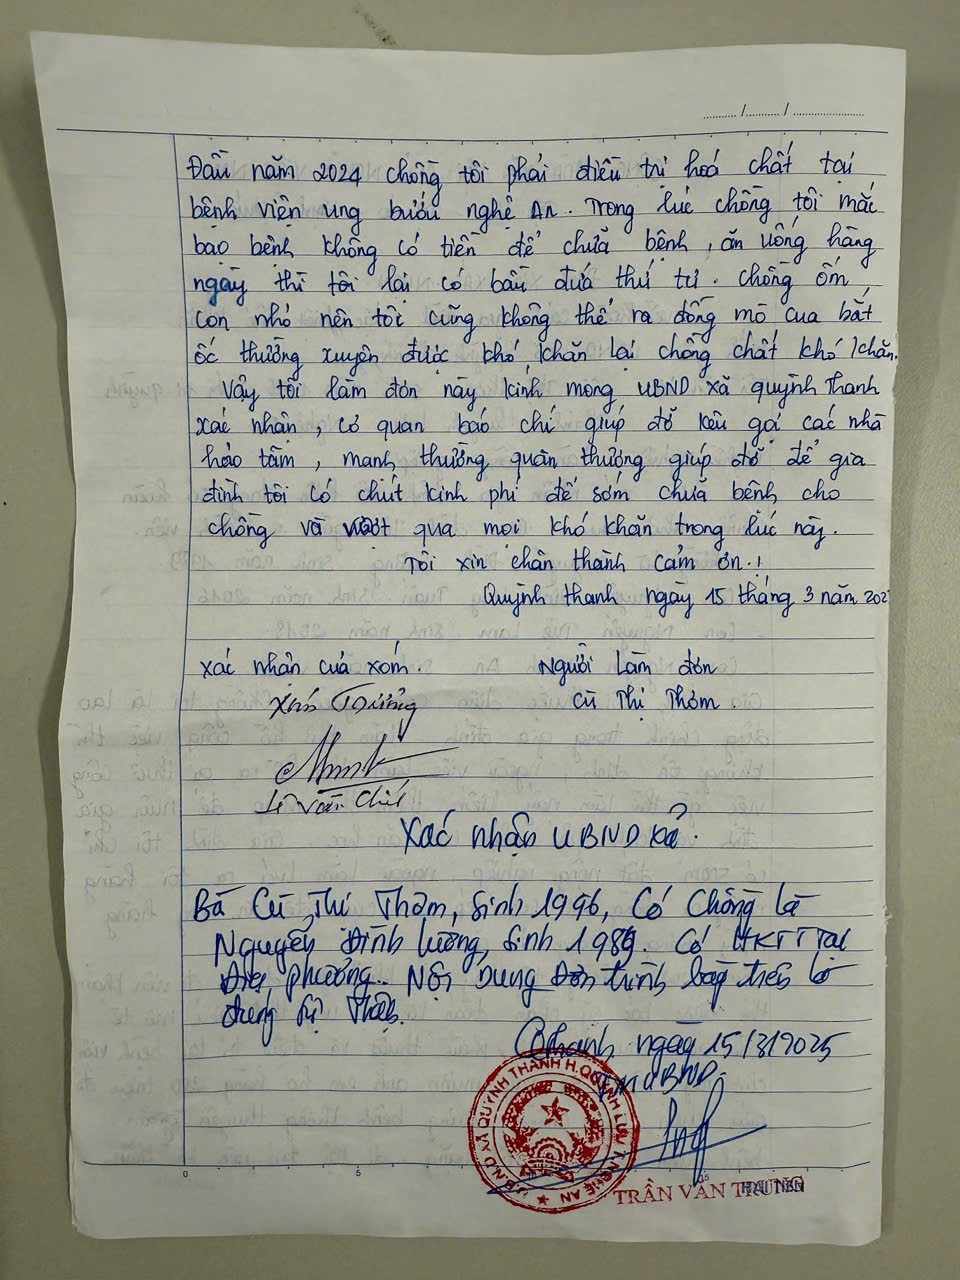 ....../....../............
Đầu năm 2024 chồng tôi phải điều trị hoá chất tại
bệnh viện ung bướu nghệ An. Trong lúc chồng tôi mắc
bạo bệnh không có tiền để chữa bệnh, ăn uống hàng
ngày thì tôi lại có bầu đứa thứ tư. chồng ốm
con nhỏ nên tôi cũng không thể ra đồng mò cua bắt
ốc thường xuyên được khó khăn lại chồng chất khó khăn.
Vậy tôi làm đơn này kính mong UBND xã quỳnh Thanh
xác nhận, cơ quan báo chí giúp đỡ kêu gọi các nhà
hảo tâm, mạnh thường quân thương giúp đỡ để gia
đình tôi có chút kinh phí để sớm chữa bệnh cho
chồng và vượt qua mọi khó khăn trong lúc này.
Tôi xin chân thành cảm ơn.!
Quỳnh thanh ngày 15 tháng 3 năm 202
xác nhận của xóm.
Người làm đơn
Xóm Trưởng
Cù Thị Thơm.
Lê Văn
Xác nhận UBND xã.
Bà Cù Thị Thơm, sinh 1996, Có Chồng là
Nguyễn Đình Lương, sinh 1989. Có HKTT tại
địa phương. Nội dung Đơn trình bày trên là
đúng sự thật.
Q thanh ngày 15/3/2025
TM UBND
U.B.N.D XÃ QUỲNH THANH H.QUỲNH LƯU T.NGHỆ AN
TRẦN VĂN TRUNG
0 5